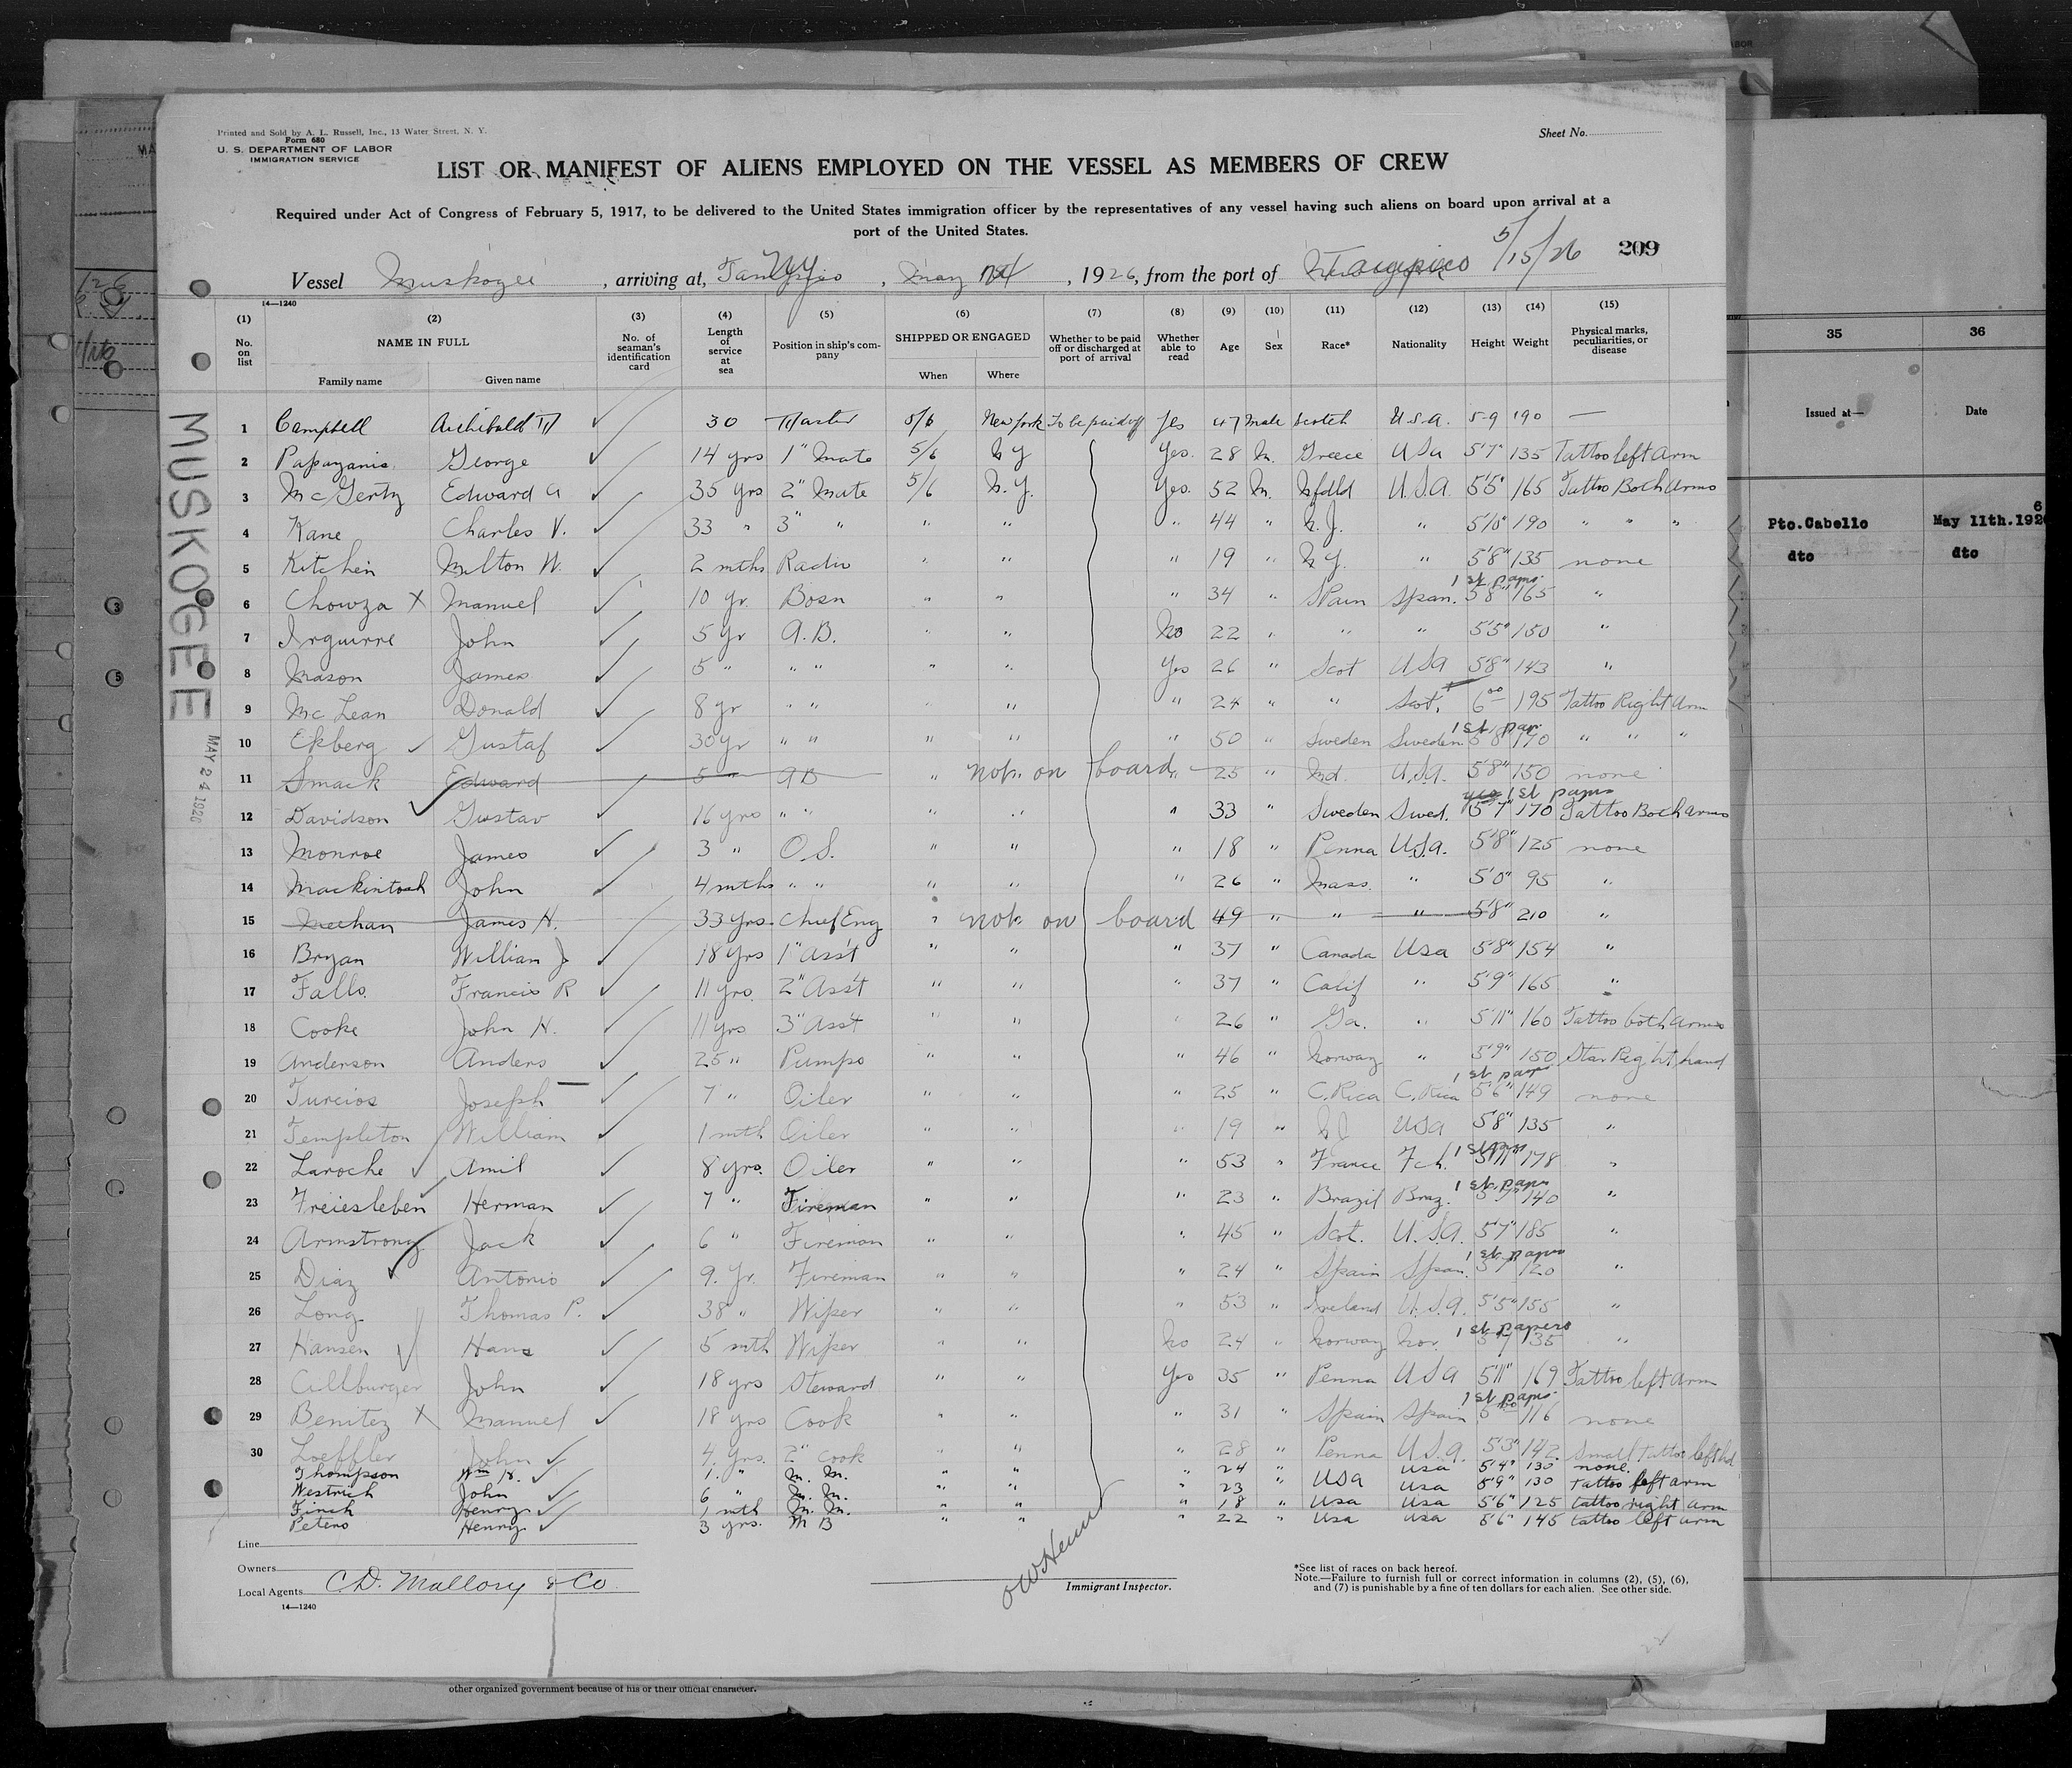 Printed and Sold by A. L. Russell, Inc., 13 Water Street, N. Y.
Form 680
U. S. DEPARTMENT OF LABOR
IMMIGRATION SERVICE
Sheet No.
LIST OR MANIFEST OF ALIENS EMPLOYED ON THE VESSEL AS MEMBERS OF CREW
Required under Act of Congress of February 5, 1917, to be delivered to the United States immigration officer by the representatives of any vessel having such aliens on board upon arrival at a
port of the United States.
5/15/26 209
Vessel Muskogee, arriving at, NY, May, 1926, from the port of Tampico
14—1240
(1) (2) (3) (4) (5) (6) (7) (8) (9) (10) (11) (12) (13) (14) (15)
No. on list NAME IN FULL Family name Given name No. of seaman's identification card Length of service at sea Position in ship's company SHIPPED OR ENGAGED When Where Whether to be paid off or discharged at port of arrival Whether able to read Age Sex Race* Nationality Height Weight Physical marks, peculiarities, or disease
1 Campbell Archibald M 30 Master 5/6 New York To be paid off Yes 47 Male Scotch U.S.A. 5-9 190 —
2 Papayanis George 14 yrs 1" Mate 5/6 N Y Yes. 28 M. Greece USA 5'7" 135 Tattoo left arm
3 McGerty Edward A 35 yrs 2" Mate 5/6 N.Y. Yes. 52 M. Nfdld U.S.A. 5'5" 165 Tattoo Both Arms
4 Kane Charles V. 33 " 3" " " " " 44 " N.J. " 5'10" 190 " " "
5 Kitchin Milton W. 2 mths Radio " " " 19 " N.Y. " 5'8" 135 none
1st paps.
6 Chowza X Manuel 10 yr Bosn " " " 34 " Spain Span. 5'8" 165 "
7 Irguirre John 5 yr A.B. " " No 22 " " " 5'5" 150 "
8 Mason James 5 " " " " " Yes 26 " Scot USA 5'8" 143 "
9 McLean Donald 8 yr " " " " " 24 " " Scot. 6 00 195 Tattoo Right Arm
1st pap.
10 Ekberg Gustaf 30 yr " " " " " 50 " Sweden Sweden 5'8" 170 " " "
11 Smack Edward 5 " AB " not on board " 25 " Md. U.S.A. 5'8" 150 none
yes 1st paps
12 Davidson Gustav 16 yrs " " " " " 33 " Sweden Swed. 5'7" 170 Tattoo Both arms
13 Monroe James 3 " O.S. " " " 18 " Penna U.S.A. 5'8" 125 none
14 Mackintosh John 4 mths " " " " " 26 " Mass. " 5'0" 95 "
15 Meehan James H. 33 yrs. Chief Eng " not on board 49 " " " 5'8" 210 "
16 Bryan William J 18 yrs 1" Ass't " " " 37 " Canada USA 5'8" 154 "
17 Falls. Francis R 11 yrs. 2" Ass't " " " 37 " Calif " 5'9" 165 "
18 Cooke John H. 11 yrs 3" Ass't " " " 26 " Ga. " 5'11" 160 Tattoo both arms
19 Anderson Anders 25 " Pumps " " " 46 " Norway " 5'9" 150 Star Right hand
1st paps
20 Turcios Joseph 7 " Oiler " " " 25 " C. Rica C. Rica 5'6" 149 none
21 Templeton William 1 mth Oiler " " " 19 " USA 5'8" 135 "
22 Laroche Amil 8 yrs. Oiler " " " 53 " France Fch. 5'11" 178 "
1st paps
23 Freiesleben Herman 7 " Fireman " " " 23 " Brazil Braz. 140 "
24 Armstrong Jack 6 " Fireman " " " 45 " Scot. U.S.A. 5'7" 185 "
1st paps
25 Diaz Antonio 9. Yr. Fireman " " " 24 " Spain Span. 5'7" 120 "
26 Long Thomas P. 38 " Wiper " " " 53 " Ireland U.S.A. 5'5" 155 "
1st papers
27 Hansen Hans 5 mth Wiper " " No 24 " Norway Nor. 5'7 135 "
28 John 18 yrs Steward " " Yes 35 " Penna USA 5'11" 169 Tattoo left arm
1st paps.
29 Benitez X Manuel 18 yrs Cook " " " 31 " Spain Spain 116 none
30 Loeffler John 4. yrs. 2" cook " " " 28 " Penna U.S.A. 5'3" 142. Small Tattoo left hd
Thompson Wm H. 1. " M. M. " " " 24 USA 5'4" 130 none.
Westrich John 6 " M. M. " " " 23 " USA USA 5'9" 130 Tattoo left arm
Finch Henry 1 mth M. M. " " " 18 " USA USA 5'6" 125 tattoo right arm
Peters Henry 3 yrs. M B " " " 22 " USA USA 5'6" 145 tattoo left arm
Line
Owners
Local Agents C.D. Mallory & Co.
14—1240
Immigrant Inspector.
*See list of races on back hereof.
Note.—Failure to furnish full or correct information in columns (2), (5), (6),
and (7) is punishable by a fine of ten dollars for each alien. See other side.
MUSKOGEE
MAY 24 1926
other organized government because of his or their official character.
35 36
Issued at— Date
Pto.Cabello May 11th.1926
dto dto
3
5